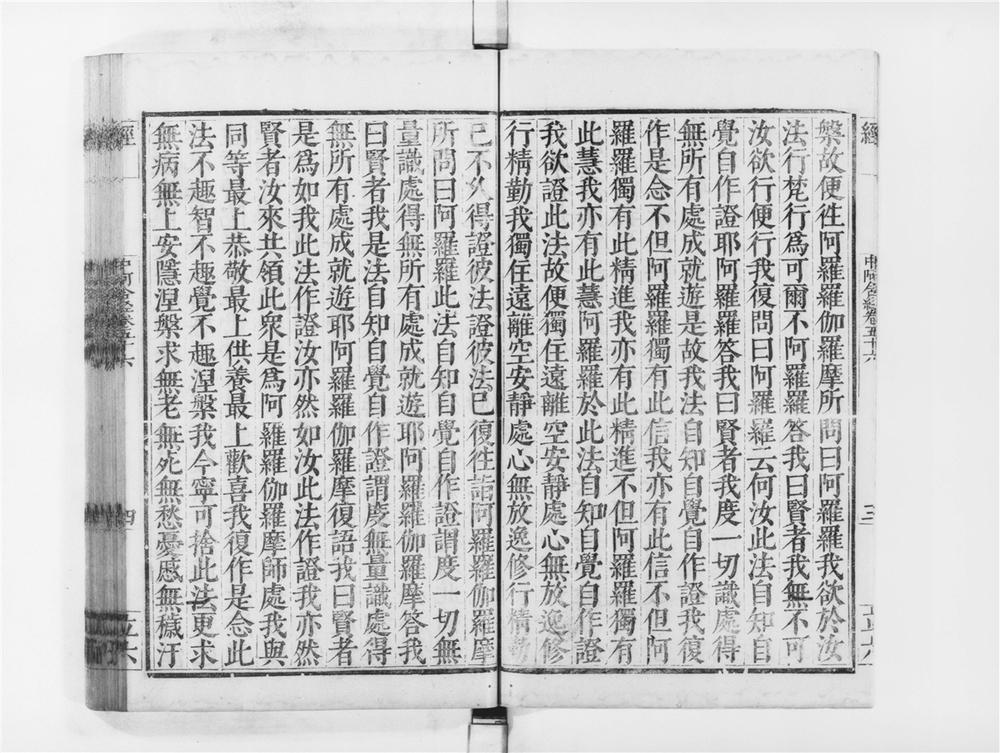 經
中阿含經卷五十六
三
槃故便往阿羅羅伽羅摩所問曰阿羅羅我欲於汝
法行梵行為可爾不阿羅羅答我曰賢者我無不可
汝欲行便行我復問曰阿羅羅云何汝此法自知自
覺自作證耶阿羅羅答我曰賢者我度一切識處得
無所有處成就遊是故我法自知自覺自作證我復
作是念不但阿羅羅獨有此信我亦有此信不但阿
羅羅獨有此精進我亦有此精進不但阿羅羅獨有
此慧我亦有此慧阿羅羅於此法自知自覺自作證
我欲證此法故便獨住遠離空安靜處心無放逸修
行精勤我獨住遠離空安靜處心無放逸修行精勤
已不久得證彼法證彼法已復往詣阿羅羅伽羅摩
所問曰阿羅羅此法自知自覺自作證謂度一切無
量識處得無所有處成就遊耶阿羅羅伽羅摩答我
曰賢者我是法自知自覺自作證謂度無量識處得
無所有處成就遊耶阿羅羅伽羅摩復語我曰賢者
是為如我此法作證汝亦然如汝此法作證我亦然
賢者汝來共領此眾是為阿羅羅伽羅摩師處我與
同等最上恭敬最上供養最上歡喜我復作是念此
法不趣智不趣覺不趣涅槃我今寧可捨此法更求
無病無上安隱涅槃求無老無死無愁憂慼無穢汙
經
中阿含經卷五十六
四